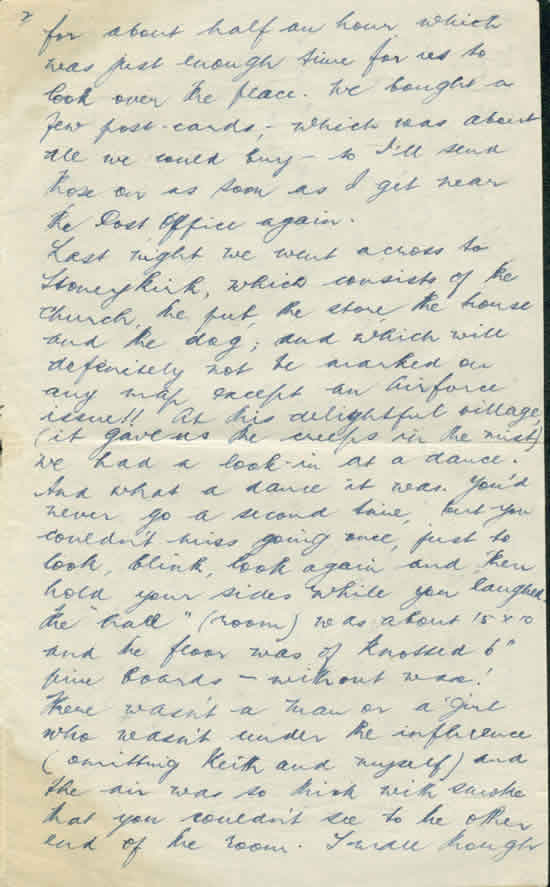 2
for about half an hour which
was just enough time for us to
look over the place. We bought a
few post-cards, - which was about
all we could buy - so I'll send
those on as soon as I get near
the Post Office again.
Last night we went across to
Stoneykirk, which consists of the
church, the pub, the store, the house
and the dog; and which will
definitely not be marked on
any map except an Airforce
issue!! At this delightful village,
(it gave us the creeps in the mist)
we had a look-in at a dance.
And what a dance it was. You'd
never go a second time, but you
couldn't miss going once, just to
look, blink, look again and then
hold your sides while you laughed.
The "hall" (room) was about 15 x 10
and the floor was of knotted 6"
pine boards - without wax!
There wasn't a man or a girl
who wasn't under the influence
(omitting Keith and myself) and
the air was so thick with smoke
that you couldn't see to the other
end of the room. I